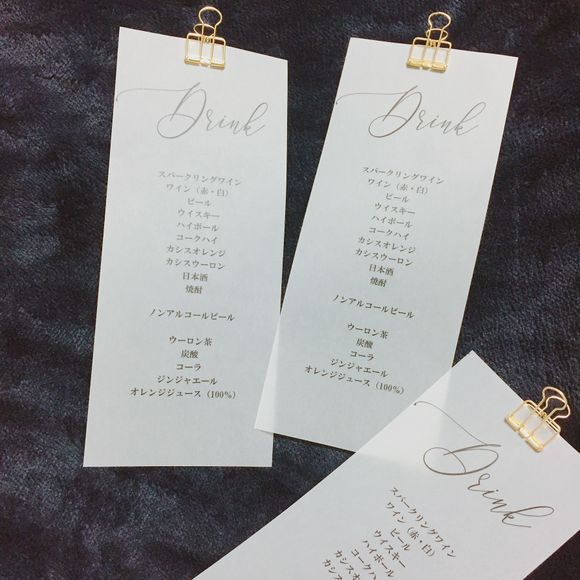 Drink
スパークリングワイン
ワイン（赤・白）
ビール
ウイスキー
ハイボール
コークハイ
カシスオレンジ
カシスウーロン
日本酒
焼酎
ノンアルコールビール
ウーロン茶
炭酸
コーラ
ジンジャエール
オレンジジュース（100%）
Drink
スパークリングワイン
ワイン（赤・白）
ビール
ウイスキー
ハイボール
コークハイ
カシスオレンジ
カシスウーロン
日本酒
焼酎
ノンアルコールビール
ウーロン茶
炭酸
コーラ
ジンジャエール
オレンジジュース（100%）
Drink
スパークリングワイン
ワイン（赤・白）
ビール
ウイスキー
ハイボール
コークハイ
カシスオレンジ